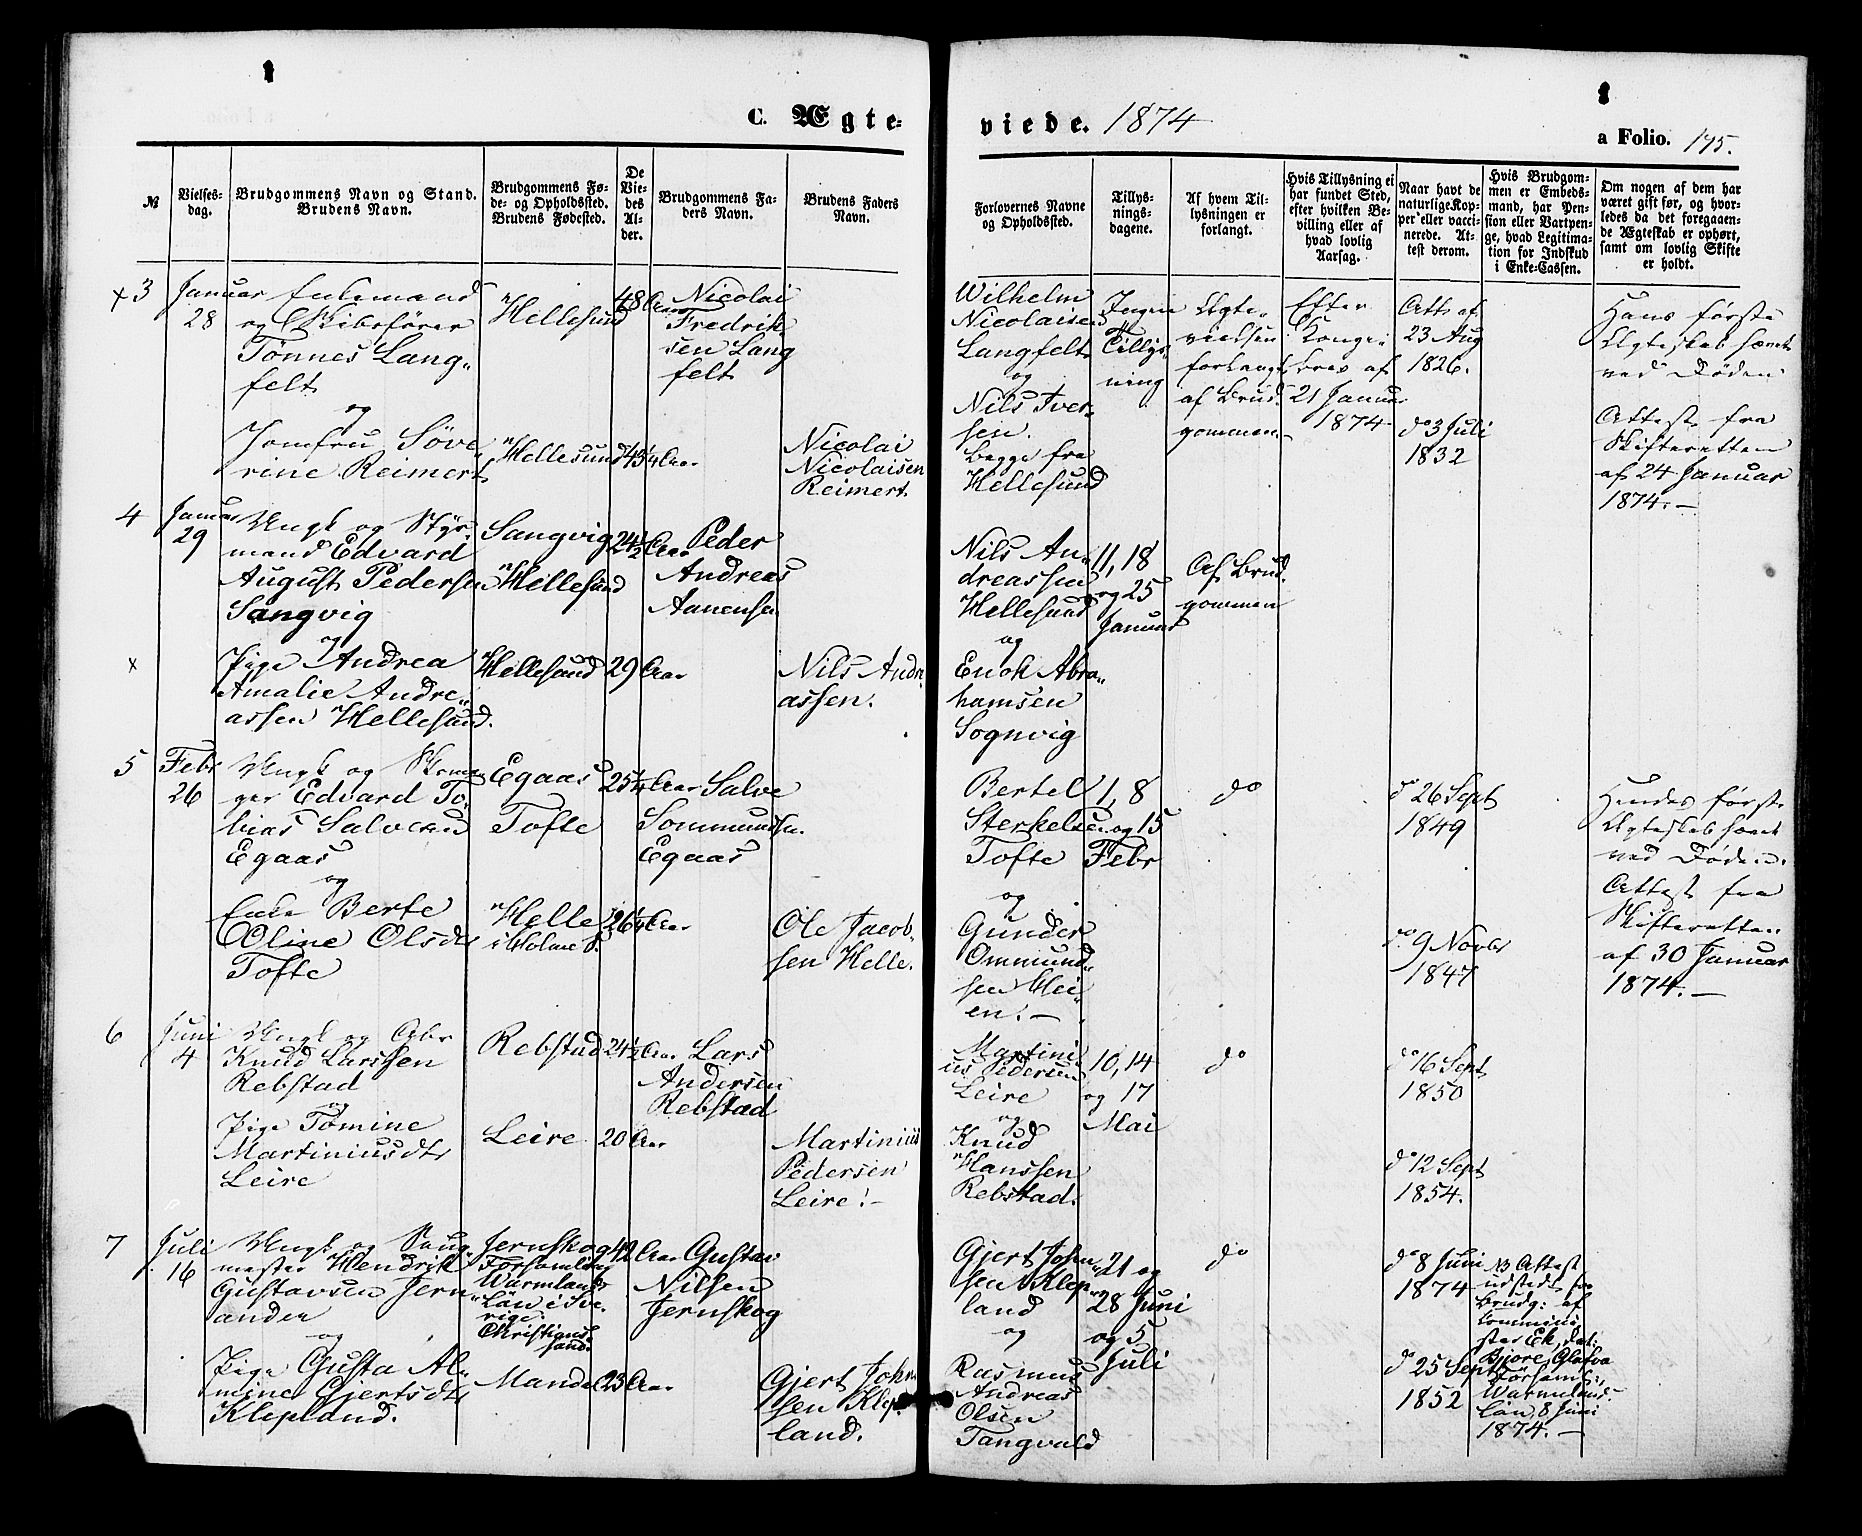 C. Ægte-
viede. 1874
a Folio. 175.
№
Vielses-
dag.
Brudgommens Navn og Stand.
Brudens Navn.
Brudgommens Fø-
de- og Opholdssted.
Brudens Fødested.
De
Vie-
des
Al-
der.
Brudgommens Fa-
ders Navn.
Brudens Faders
Navn.
Forlovernes Navne
og Opholdssted.
Tillys-
nings-
dagene.
Af hvem Til-
lysningen er
forlangt.
Hvis Tillysning ei
har fundet Sted,
efter hvilken Be-
villing eller af
hvad lovlig
Aarsag.
Naar havt de
naturlige Kop-
per eller vacci-
nerede. At-
test derom.
Hvis Brudgom-
men er Embeds-
mand, har Pen-
sion eller Vartpen-
ge, hvad Legitima-
tion for Indskud
i Enke-Cassen.
Om nogen af dem har
været gift før, og hvor-
ledes da det foregaaen-
de Ægteskab er ophørt,
samt om lovlig Skifte
er holdt.
x 3
Januar
28
Enkemand
og Skibsfører
Tønnes Lang-
felt
og
Jomfru Söve-
rine Reimert
Hellesund
Hellesund
48 Aar
43 1/4 Aar
Nicolai
Fredrik
sen Lang
felt
Nicolai
Nicolaisen
Reimert
Wilhelm
Nicolaisen
Langfelt
og
Nils Iver-
sen.
begge fra
Hellesund
Ingen
Tillys-
ning
Ægte-
vielsen
forlangt
af Brud-
gommen.-
Efter
Konge-
brev af
21 Januar
1874
Att. af
23 Aug
1826.
do 3 Juli
1832
Hans første
Ægteskab hævet
ved Døden.
Attest fra
Skifteretten
af 24 Januar
1874.-
4
Januar
29
Ungk og Styr-
mand Edvard
August Pedersen
Sangvig
og
x
Pige Andrea
Amalie Andre-
assen Hellesund.
Sangvig
Hellesund
Hellesund
24 1/2 Aar
29 Aar
Peder
Andreas
Aanensen
Nils Andre
assen.
Nils An-
dreassen
Hellesund
og
Enok Abra-
hamsen
Sognvig
11, 18
og 25
Januar
Af Brud-
gommen
5
Febr
26
Ungk og Skoma-
ger Edvard To-
bias Salvesen
Egaas
og
Enke Berte
Oline Olsdt
Tofte
Egaas
Tofte
Helle
i Holme S.
25 1/4 Aar
26 1/4 Aar
Salve
Sommundsen
Egaas
Ole Jacob-
sen Helle.
Bertel
Sterkelsen
Tofte
og
Gunder
Ommund-
sen Hei-
en.-
1, 8
og 15
Febr
do
do 26 Sept
1849
do 9 Novbr
1847
Hendes første
Ægteskab hævet
ved Døden.
Attest fra
Skifteretten
af 30 Januar
1874.-
6
Juni
4
Ungk og Arbr
Knud Larssen
Rebstad
og
Pige Tomine
Martiniusdt
Leire
Rebstad
Leire
24 1/2 Aar
20 Aar
Lars
Andersen
Rebstad
Martinius
Pedersen
Leire.-
Martini-
us Pedersen
Leire
og
Knud
Hanssen
Rebstad.
10, 14
og 17
Mai
do
do 16 Sept
1850
do 12 Sept
1854.
7
Juli
16
Ungk og
mester Hendrik
Gustavsen Jern-
anden
og
Pige Gusta Al-
mine Gjertsdt
Klepland.
Jernskog
Forsamling
Warmlands
Län i Sve-
rige.
Christians-
sand.
Mandal
42 Aar
23 Aar
Gustav
Nilsen
Jernskog
Gjert John-
sen Klep-
land.
Gjert John-
sen Klep-
land
og
Rasmus
Andreas
Olsen
Tangvald
21 og
28 Juni
og 5
Juli
do
do 8 Juni
1874
do 25 Sept
1852
NB Attest
udstedt for
Brudg: af
Comminis-
ster Ek, dat:
Forsaml:,
Warmland
Län, 8 Juni
1874.-